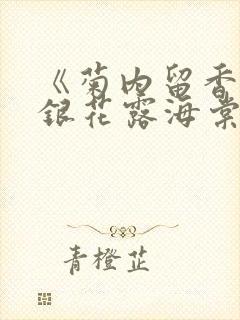 《菊内留香
銀花露海棠
青橙芷